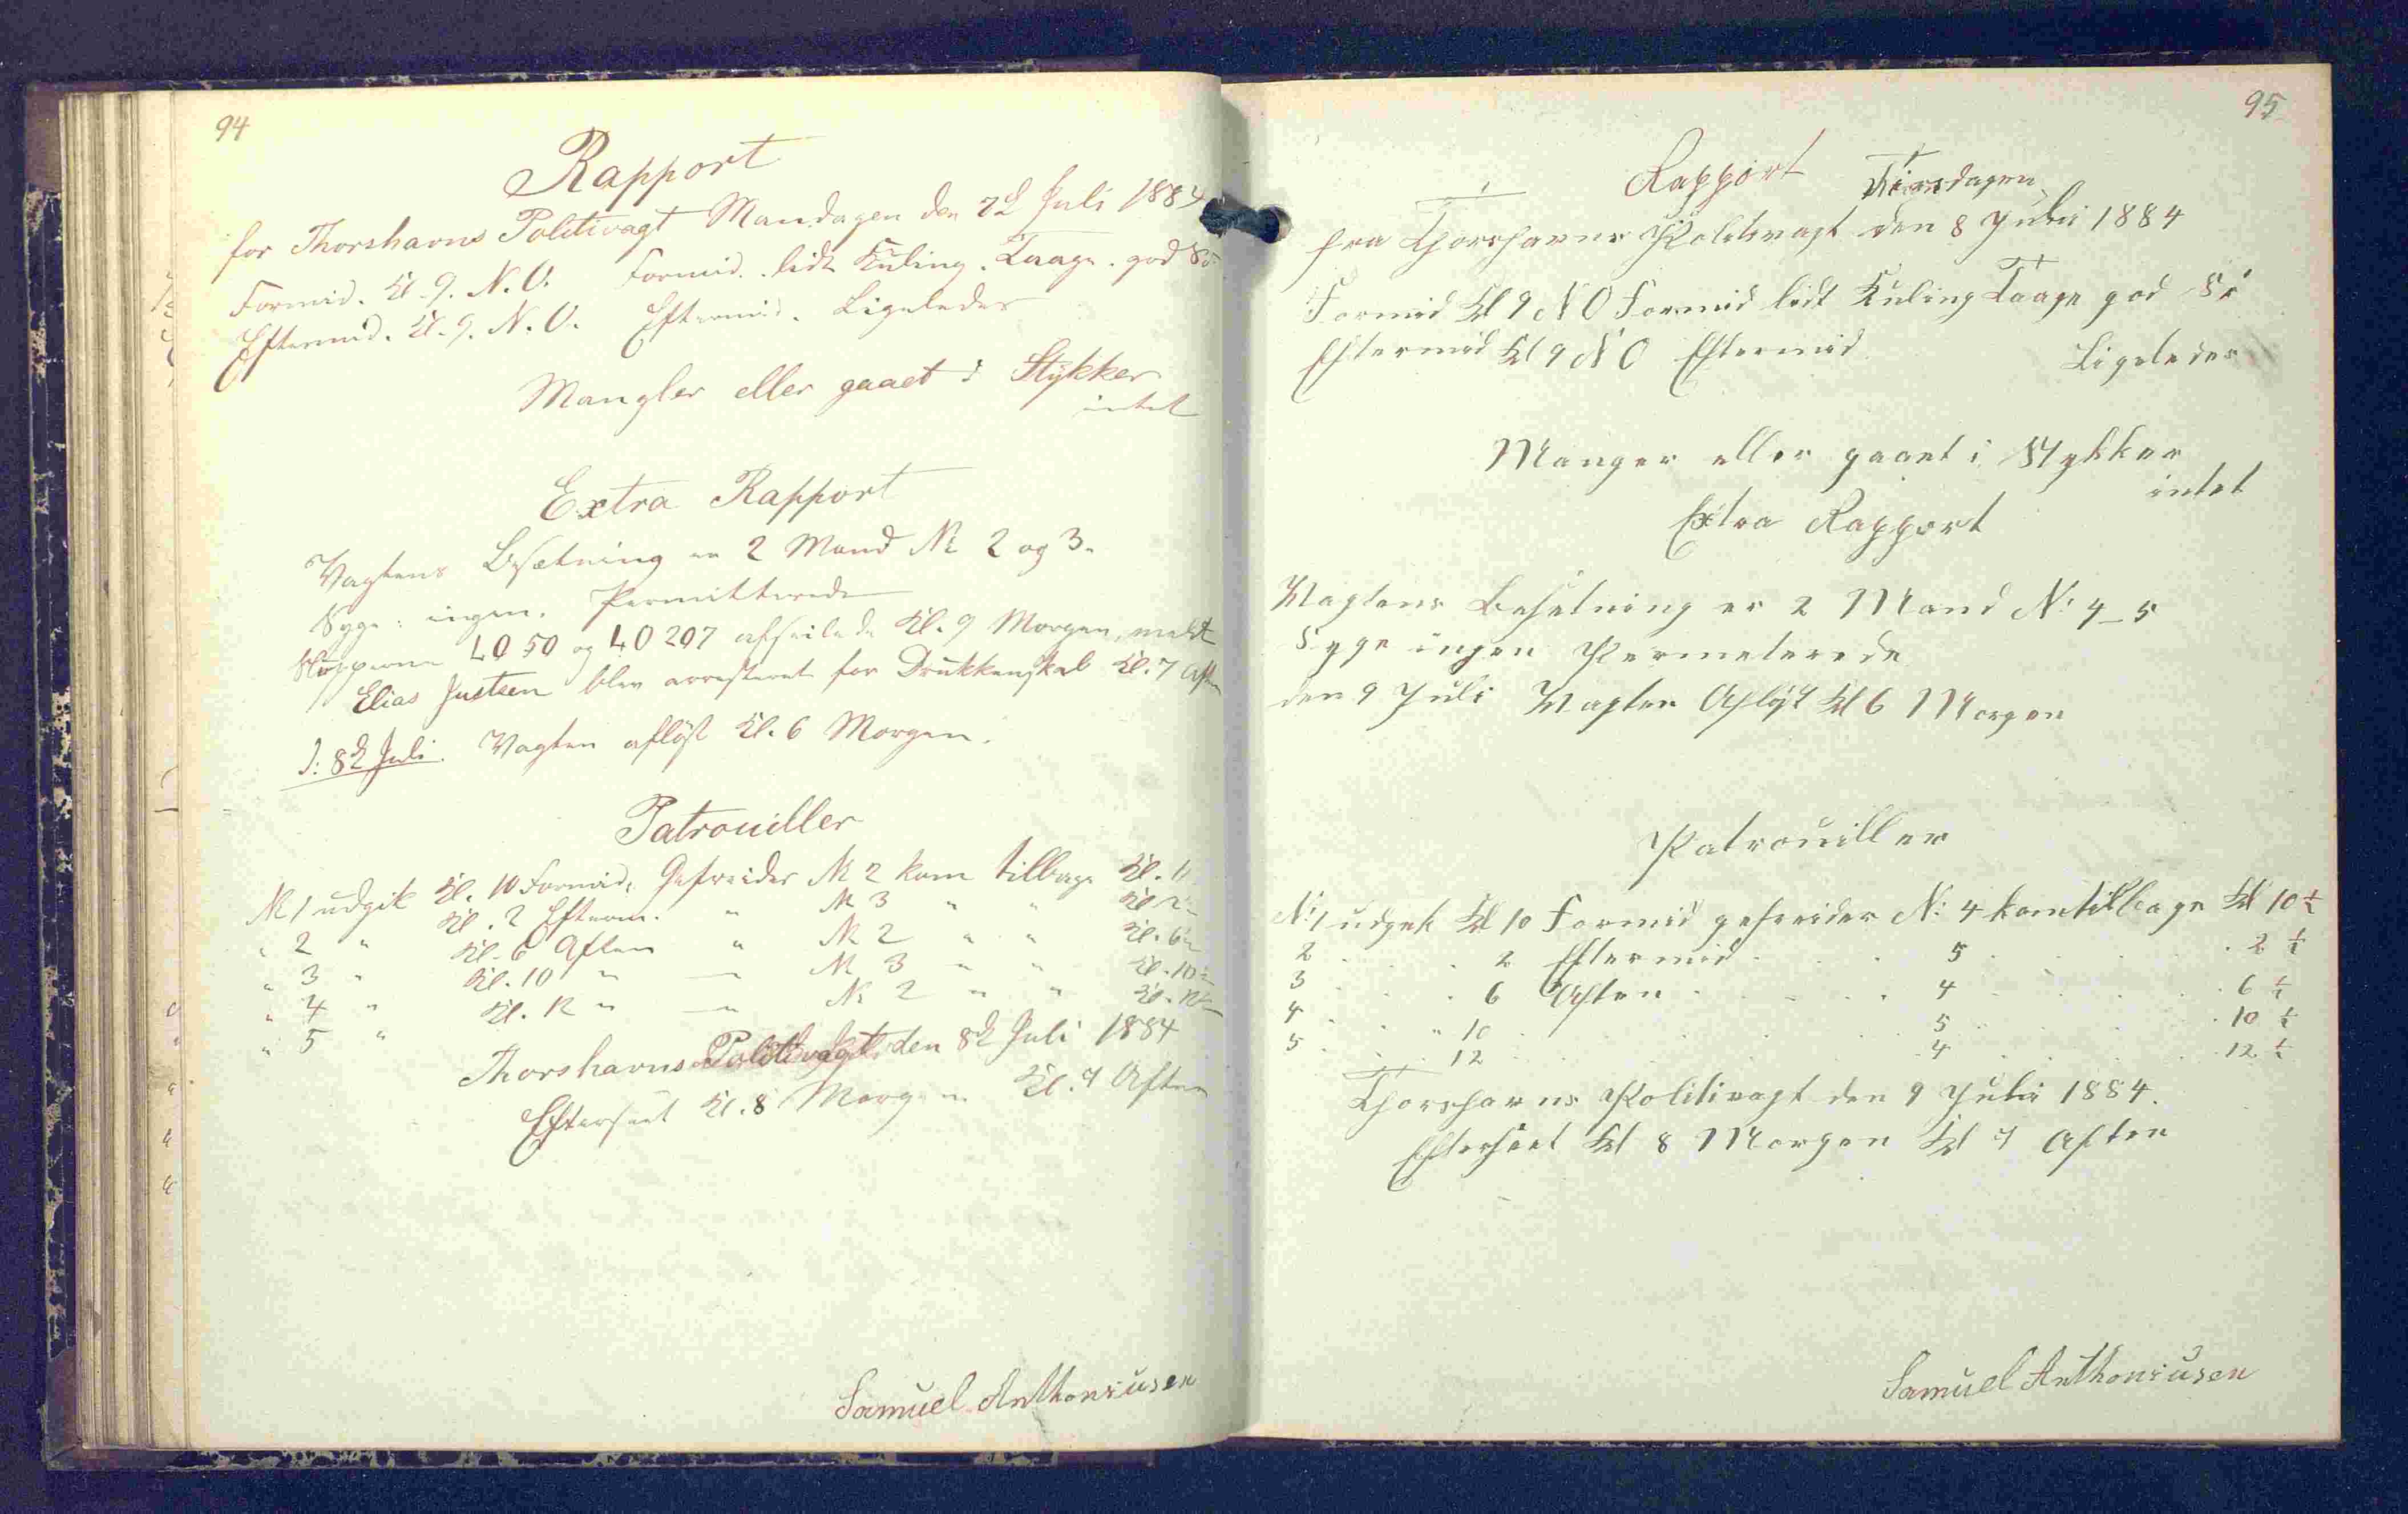 94
Rapport
for Thorshavns Politivagt Mandagen den 7d Juli 1884
Formid. Kl. 9. N.O. Formid. lidt Kuling. Taage. god Sö
Eftermid. Kl. 9. N.O. Eftermid. Ligeledes
Mangler eller gaaet i Stykker
intet
Extra Rapport
Vagtens Besætning er 2 Mand No 2 og 3.
Syge: ingen. Permitterede
Slupperne LO 50 og LO 207 afseilede Kl. 9 Morgen,
Elias Justsen blev arresteret for Drukkenskab Kl. 7 Aften
D: 8d Juli. Vagten aflöst Kl. 6 Morgen.
Patrouiller
No 1 udgik Kl. 10 Formid. Gefreider No 2 kom tilbage Kl. 11
" 2 " Kl. 2 Efterm. " No 3 " " Kl. 2½
" 3 " Kl. 6 Aften " No 2 " " Kl. 6½
" 4 " Kl. 10 " " No 3 " " Kl. 10½
" 5 " Kl. 12 " " No 2 " " Kl. 12½
Thorshavns Politivagt den 8d Juli 1884
Efterseet Kl. 8 Morgen Kl. 7 Aften
Samuel Anthoniusen
95
Rapport Tirsdagen
fra Thorshavns Politivagt den 8 Juli 1884
Formid Kl 9 NO Formid lidt Kuling Taage god Sö
Eftermid Kl 9 NO Eftermid Ligeledes
Manger eller gaaet i Stykker
intet
Extra Rapport
Vagtens Besetning er 2 Mand No: 4_5
Syge ingen Permeterede
den 9 Juli Vagten Aflöst Kl 6 Morgen
Patrouiller
No: 1 udgek Kl 10 Formid gefreider No: 4 kom tilbage Kl 10½
2 . . . 2 Eftermid . . . 5 . . . 2½
3 . . . 6 Aften . . . 4 . . . 6½
4 . . . 10 . . . 5 . . . 10½
5 . . . 12 . . . 4 . . . 12½
Thorshavns Politivagt den 9 Juli 1884.
Efterseet Kl 8 Morgen Kl 7 Aften
Samuel Anthoniusen